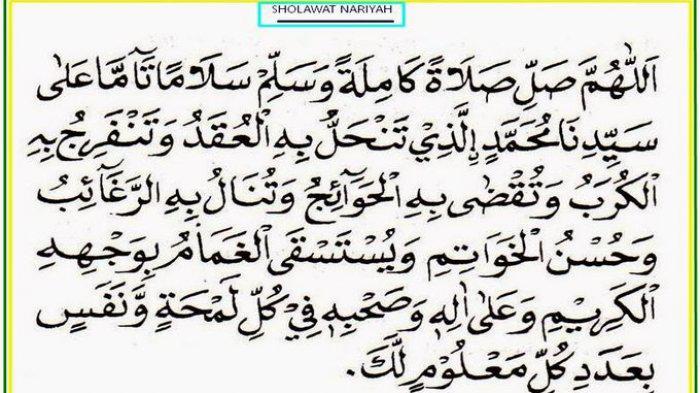 SHOLAWAT NARIYAH
اَللّٰهُمَّ صَلِّ صَلَاةً كَامِلَةً وَسَلِّمْ سَلَامًا تَآمًّا عَلٰى
سَيِّدِنَا مُحَمَّدٍ اِلَّذِيْ تَنْحَلُّ بِهِ الْعُقَدُ وَتَنْفَرِجُ بِهِ
الْكُرَبُ وَتُقْضٰى بِهِ الْحَوَآئِجُ وَتُنَالُ بِهِ الرَّغَآئِبُ
وَحُسْنُ الْخَوَاتِمِ وَيُسْتَسْقَى الْغَمَامُ بِوَجْهِهِ
الْكَرِيْمِ وَعَلٰى اٰلِهٖ وَصَحْبِهٖ فِيْ كُلِّ لَمْحَةٍ وَّنَفَسٍ
بِعَدَدِ كُلِّ مَعْلُوْمٍ لَّكَ.